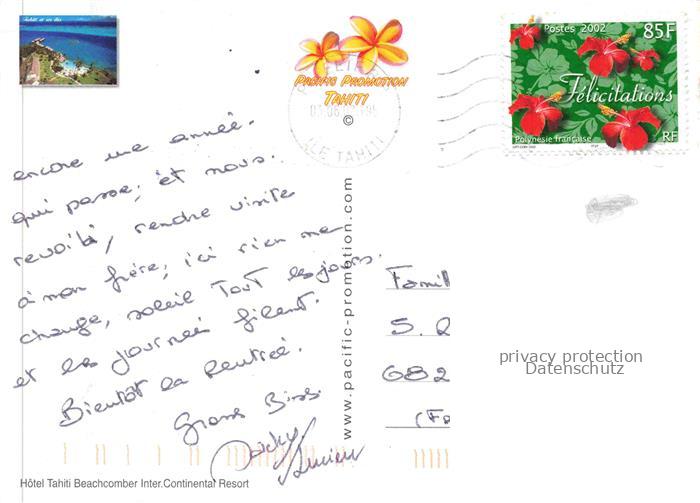 Tahiti et ses îles
PACIFIC PROMOTION
TAHITI
©
ILE TAHITI
Postes 2002 85F
Félicitations
Polynésie française RF
encore une année.
qui passe, et nous.
revoilà, rendre visite
à mon frère; ici rien ne
change, soleil tout les jours.
et les journées filent.
Bientôt la rentrée.
Gross Bises
Lucien
www.pacific-promotion.com
Famil
S.
682
(Fr
privacy protection
Datenschutz
Hôtel Tahiti Beachcomber Inter.Continental Resort